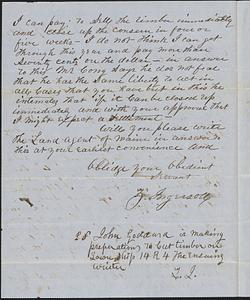 I can pay; to sell the timber immediately
and close up the concern in four or
five weeks - I do not think I can get
through this year and pay more than
seventy cents on the dollar - in answer
to this Mr Cony says he dos not feal
that he has the same liberty to act in
all Cases that you have but in this he
intimates that if it can be closed up
immediately and with your approval that
I might expect a settlement -
Will you please write
the Land Agent of Maine in answer to
this at your earliest convenience and
Oblidge your Obedient
Servant
Z. Ingersoll
P.S. John Goddard is making
preparations to Cut timber on
Township 14 R 4 The ensuing
winter
Z. I.